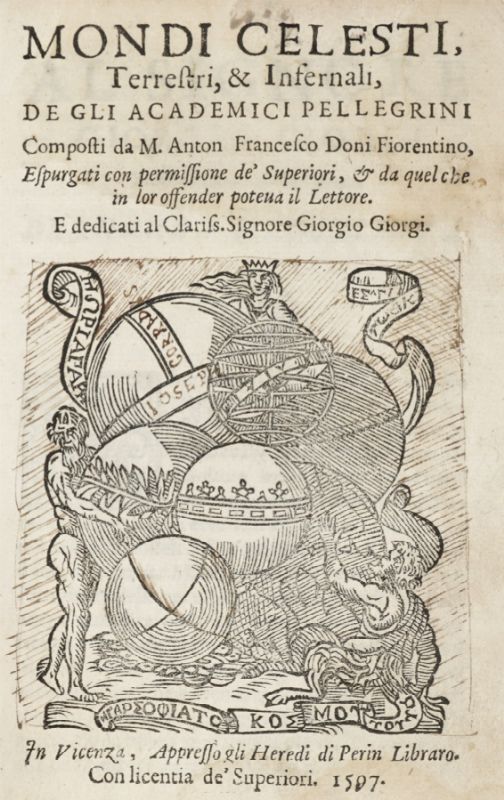 MONDI CELESTI,
Terreſtri, & Infernali,
DE GLI ACADEMICI PELLEGRINI
Compoſti da M. Anton Franceſco Doni Fiorentino,
Eſpurgati con permiſſione de' Superiori, & da quel che
in lor offender poteua il Lettore.
E dedicati al Clariſs. Signore Giorgio Giorgi.
ΗΓΑΡΣΟΦΙΑΤΟ ΚΟΣ ΜΟΥ ΤΟΥΤΟΥ
In Vicenza, Appreſſo gli Heredi di Perin Libraro.
Con licentia de' Superiori. 1597.